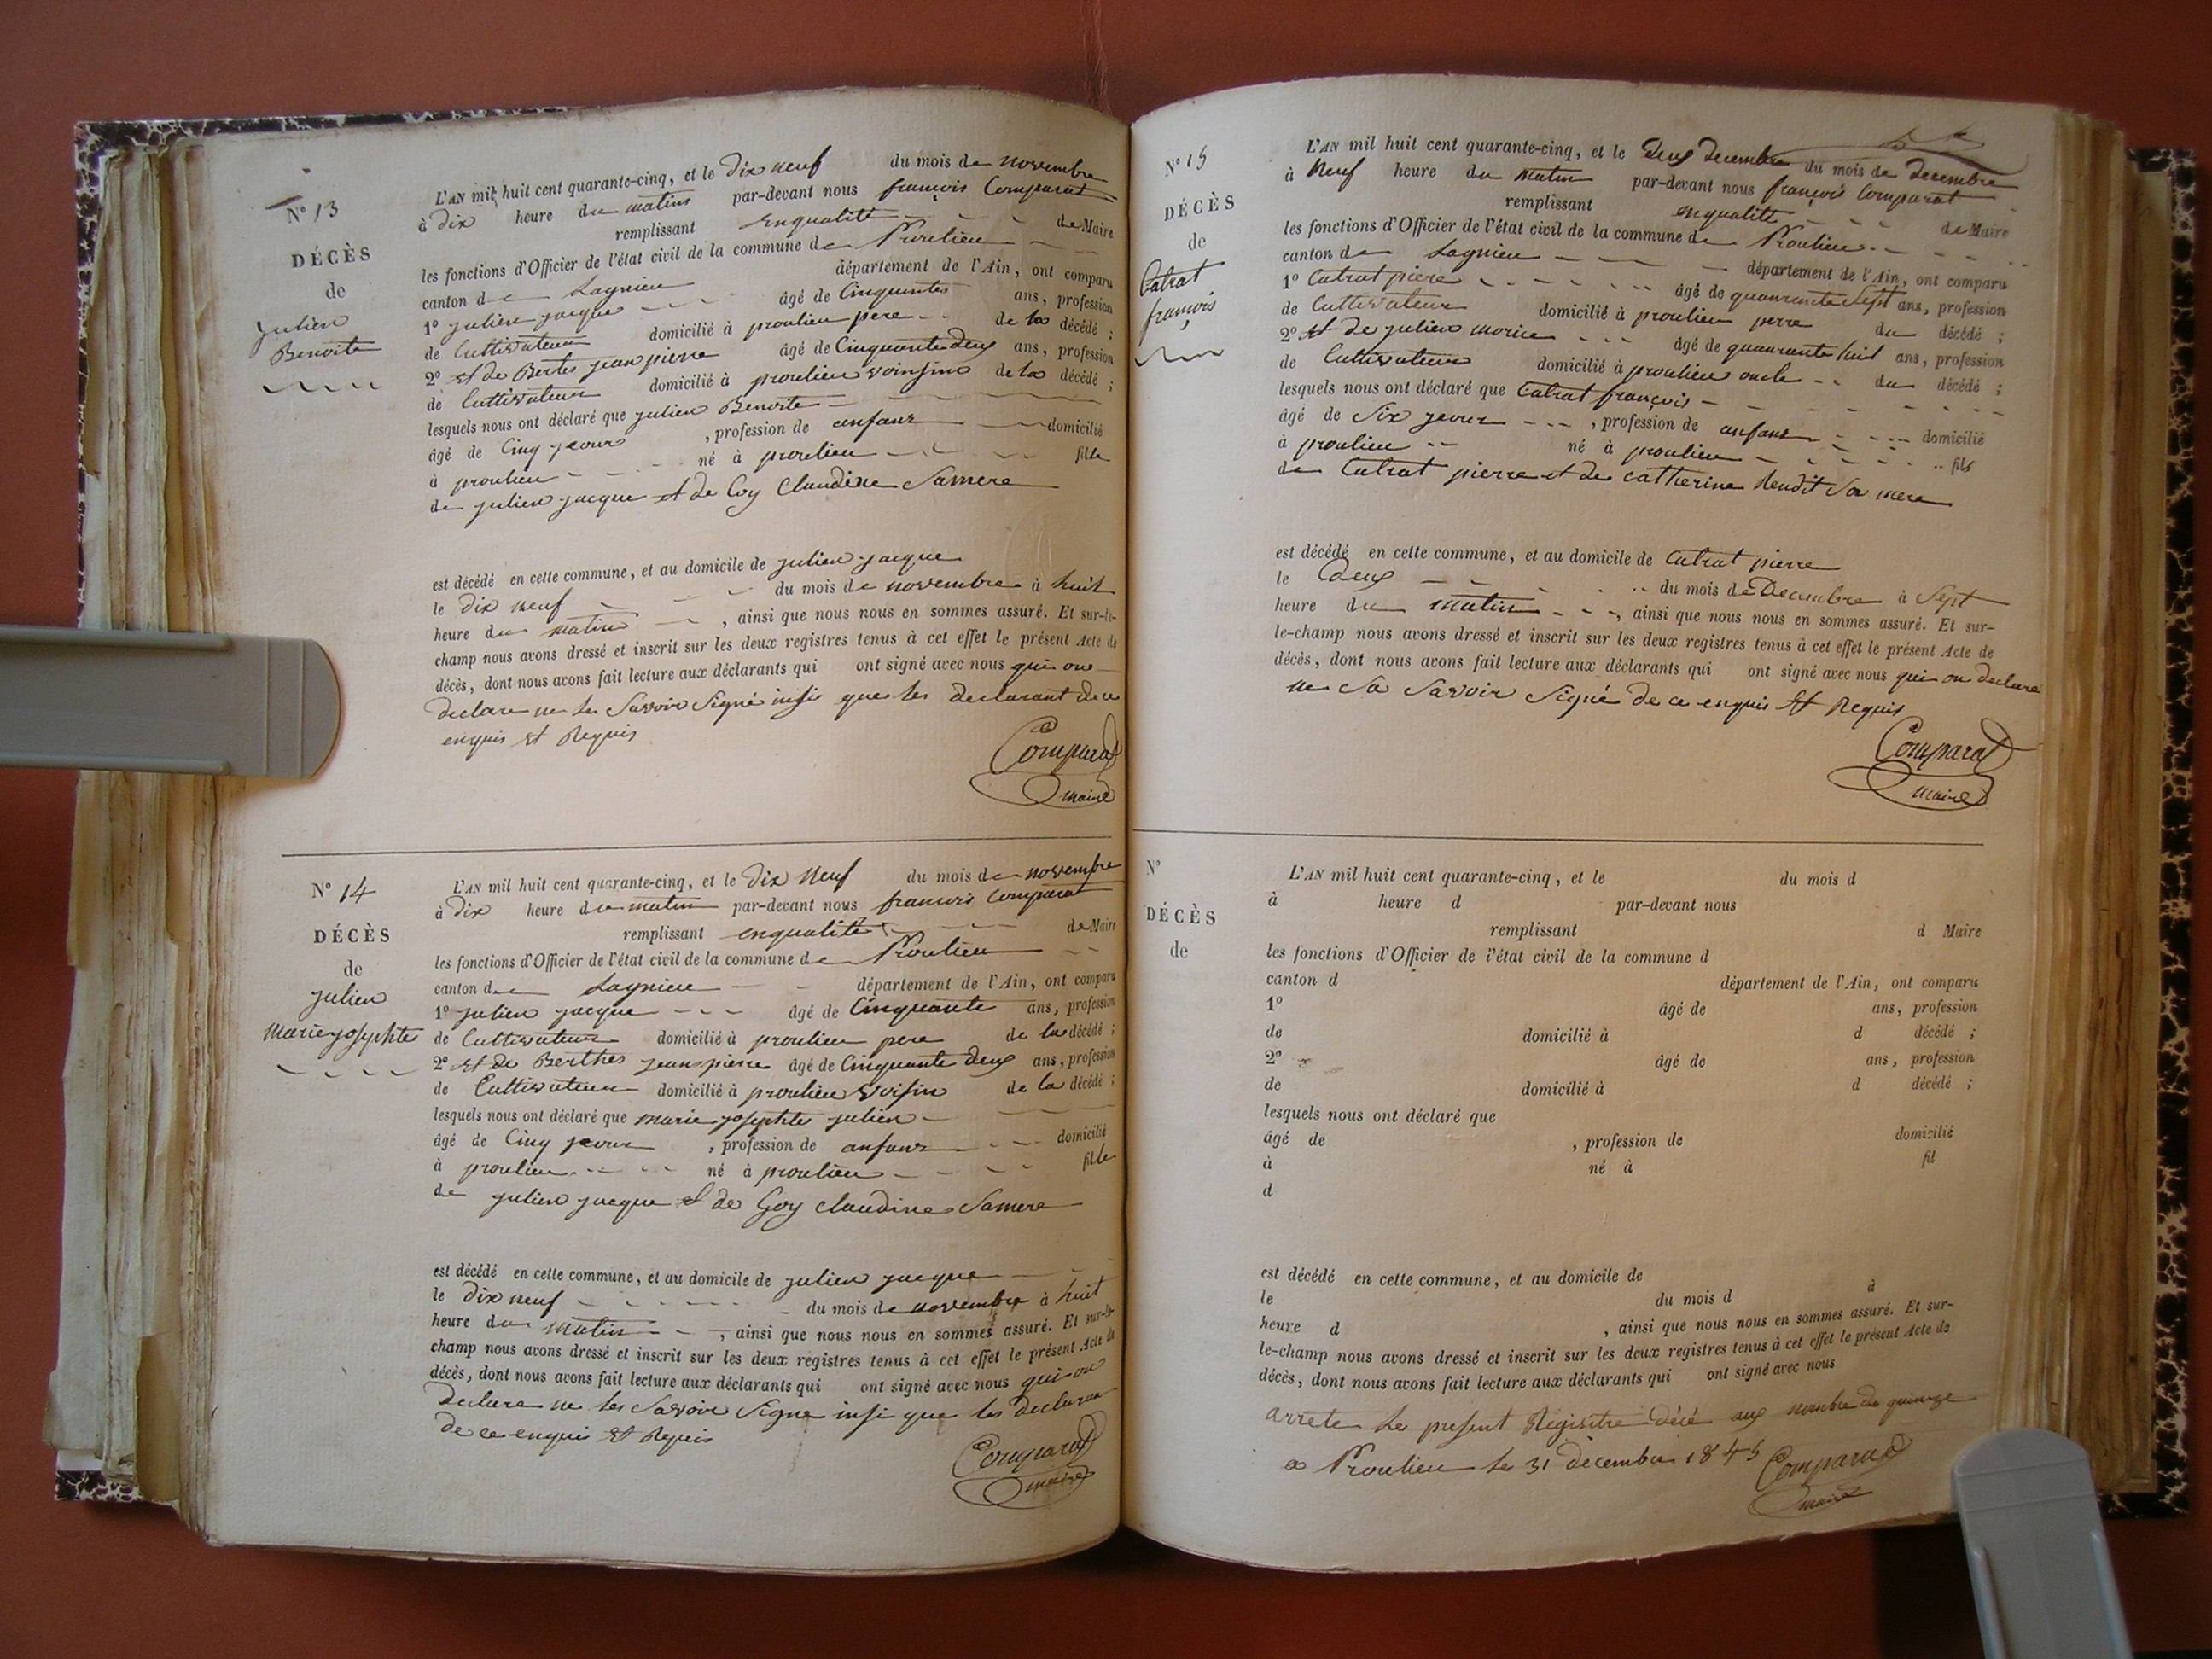 N° 13
DÉCÈS
de
julien
Benoite
L'AN mil huit cent quarante-cinq, et le Dix neuf du mois de novembre
à dix heure du matin par-devant nous françois Comparat
remplissant enqualité de Maire
les fonctions d'Officier de l'état civil de la commune de Proulieu
canton de Lagnieu département de l'Ain, ont comparu
1° julien jacque âgé de Cinquente ans, profession
de Cultivateur domicilié à proulieu pere de la décédé ;
2° et de Bertes jean pierre âgé de Cinquente deux ans, profession
de Cultivateur domicilié à proulieu voinsin de la décédé ;
lesquels nous ont déclaré que julien Benoite
âgé de Cinq jeour , profession de anfant domicilié
à proulieu né à proulieu fille
de julien jacque et de Goy Claudine Samere
est décédé en cette commune, et au domicile de julien jacque
le dix neuf du mois de novembre à huit
heure du matin , ainsi que nous nous en sommes assuré. Et sur-le-
champ nous avons dressé et inscrit sur les deux registres tenus à cet effet le présent Acte de
décès, dont nous avons fait lecture aux déclarants qui ont signé avec nous qui on
declare ne les Savoir Signé insi que les declarant de ce
enquis et Requis
Comparat
maire
N° 14
DÉCÈS
de
julien
Marie josephte
L'AN mil huit cent quarante-cinq, et le Dix Neuf du mois de novembre
à dix heure du matin par-devant nous francois Comparat
remplissant enqualité de Maire
les fonctions d'Officier de l'état civil de la commune de Proulieu
canton de Lagnieu département de l'Ain, ont comparu
1° julien jacque âgé de Cinqueante ans, profession
de Cultivateur domicilié à proulieu pere de la décédé ;
2° et de Berthes jeanspierre âgé de Cinquante deux ans, profession
de Cultivateur domicilié à proulieu voisin de la décédé ;
lesquels nous ont déclaré que marie josephte julien
âgé de Cinq jeour , profession de anfant domicilié
à proulieu né à proulieu fille
de julien jacque et de Goy claudine Samere
est décédé en cette commune, et au domicile de julien jacque
le dix neuf du mois de novembre à huit
heure du matin , ainsi que nous nous en sommes assuré. Et sur-le-
champ nous avons dressé et inscrit sur les deux registres tenus à cet effet le présent Acte de
décès, dont nous avons fait lecture aux déclarants qui ont signé avec nous qui on
declare ne les Savoir Signe insi que les declaran
de ce enquis et Requis
Comparat
maire
N° 15
DÉCÈS
de
Catrat
françois
L'AN mil huit cent quarante-cinq, et le deux decembre du mois de decembre
à Neuf heure du matin par-devant nous françois Comparat
remplissant enqualité de Maire
les fonctions d'Officier de l'état civil de la commune de Proulieu
canton de Lagnieu département de l'Ain, ont comparu
1° Catrat piere âgé de quanrente sept ans, profession
de Cultivateur domicilié à proulieu perre du décédé ;
2° et de julien morice âgé de quaurante huit ans, profession
de Cultivateur domicilié à proulieu oncle du décédé ;
lesquels nous ont déclaré que Catrat françois
âgé de Six jeour , profession de anfant domicilié
à proulieu né à proulieu fils
de Catrat pierre et de catherine Rendit Sa mere
est décédé en cette commune, et au domicile de Catrat pierre
le deux du mois de Decembre à Sept
heure du matin , ainsi que nous nous en sommes assuré. Et sur-
le-champ nous avons dressé et inscrit sur les deux registres tenus à cet effet le présent Acte de
décès, dont nous avons fait lecture aux déclarants qui ont signé avec nous qui on declare
ne Sa Savoir Signé de ce enquis et Requis
Comparat
maire
N°
DÉCÈS
de
L'AN mil huit cent quarante-cinq, et le du mois d
à heure d par-devant nous
remplissant d Maire
les fonctions d'Officier de l'état civil de la commune d
canton d département de l'Ain, ont comparu
1° âgé de ans, profession
de domicilié à d décédé ;
2° âgé de ans, profession
de domicilié à d décédé ;
lesquels nous ont déclaré que
âgé de , profession de domicilié
à né à fil
d
est décédé en cette commune, et au domicile de
le du mois d à
heure d , ainsi que nous nous en sommes assuré. Et sur-
le-champ nous avons dressé et inscrit sur les deux registres tenus à cet effet le présent Acte de
décès, dont nous avons fait lecture aux déclarants qui ont signé avec nous
arrete Le present Registre décé aux nombre de quinze
a Proulieu le 31 decembre 1845 Comparat
maire